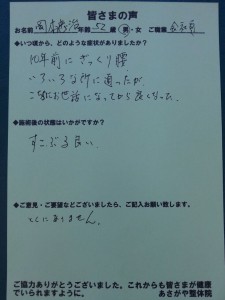 皆さまの声
お名前 年齢 52 歳 男・女 ご職業 会社員
◆いつ頃から、どのような症状がありましたか?
10年前にぎっくり腰
いろいろな所に通ったが、
お世話になってから良くなった。
◆施術後の状態はいかがですか?
すこぶる良い。
◆ご意見・ご要望などございましたら、ご記入お願い致します。
とくにありません。
ご協力ありがとうございました。これからも皆さまが健康
でいられますように。 あさがや整体院